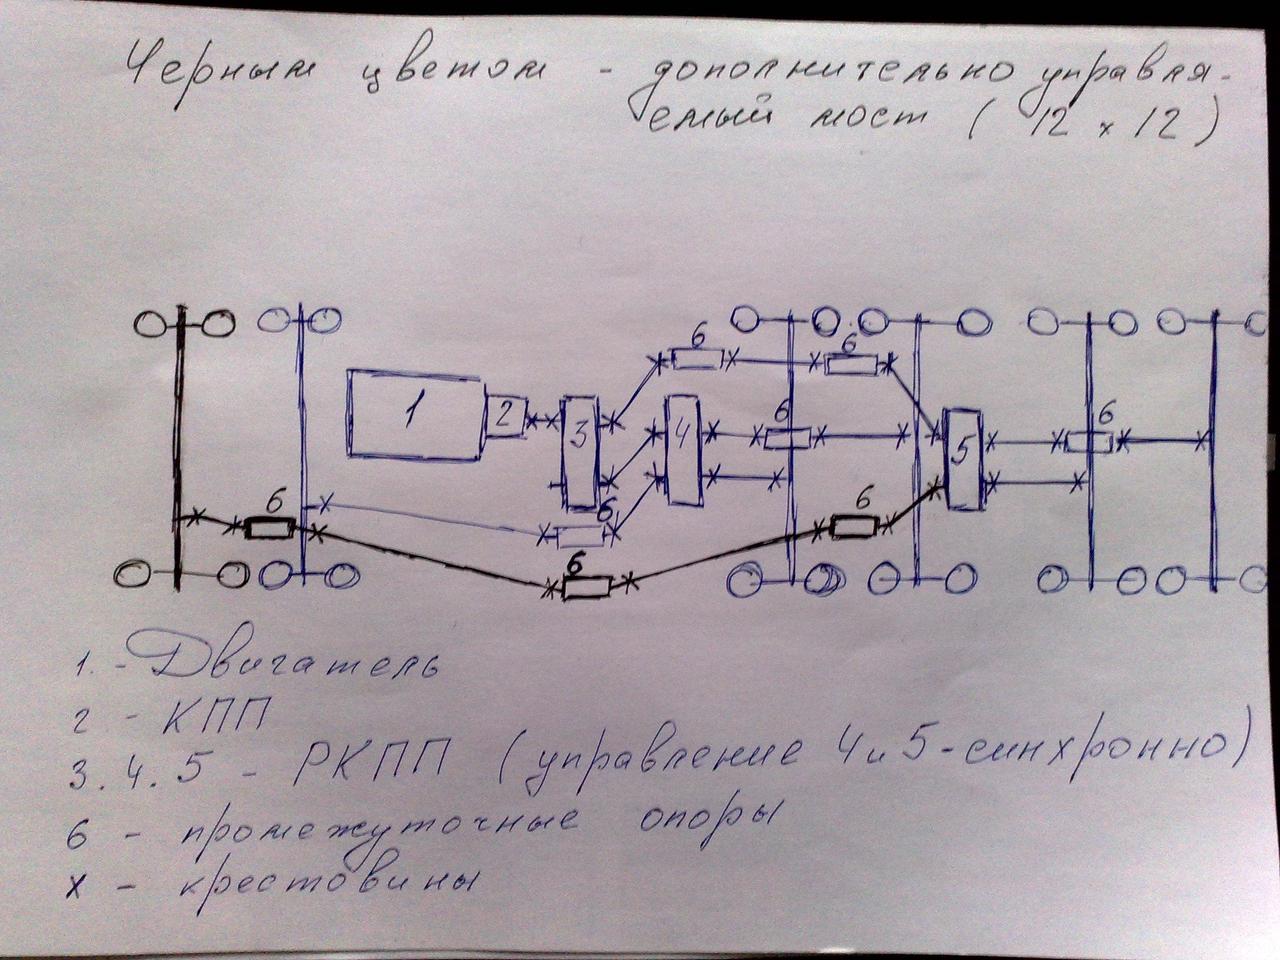 Черным цветом - дополнительно управля-
емый мост ( 12 х 12 )
6
6
1
2
3
4
6
5
6
6
6
6
6
1. - Двигатель
2 - КПП
3. 4. 5 - РКПП ( управление 4 и 5 - синхронно )
6 - промежуточные опоры
х - крестовины